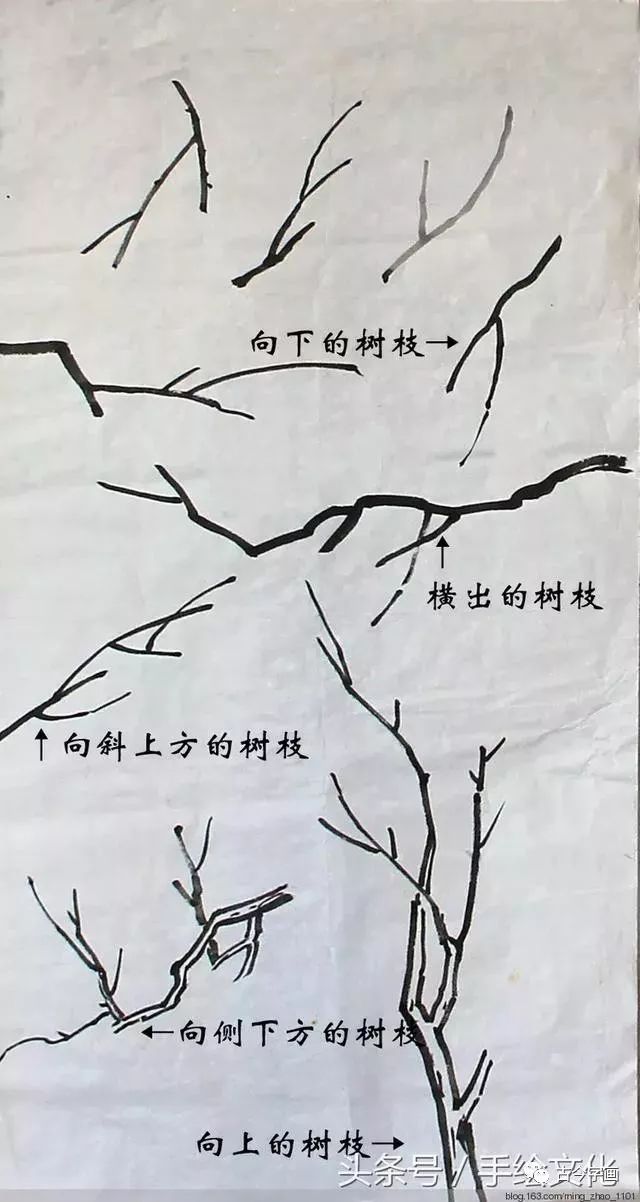 向下的树枝→
横出的树枝
向斜上方的树枝
←向侧下方的树枝
向上的树枝→
头条号／手绘文化
古今字画
blog.163.com/ming_zhao_1101